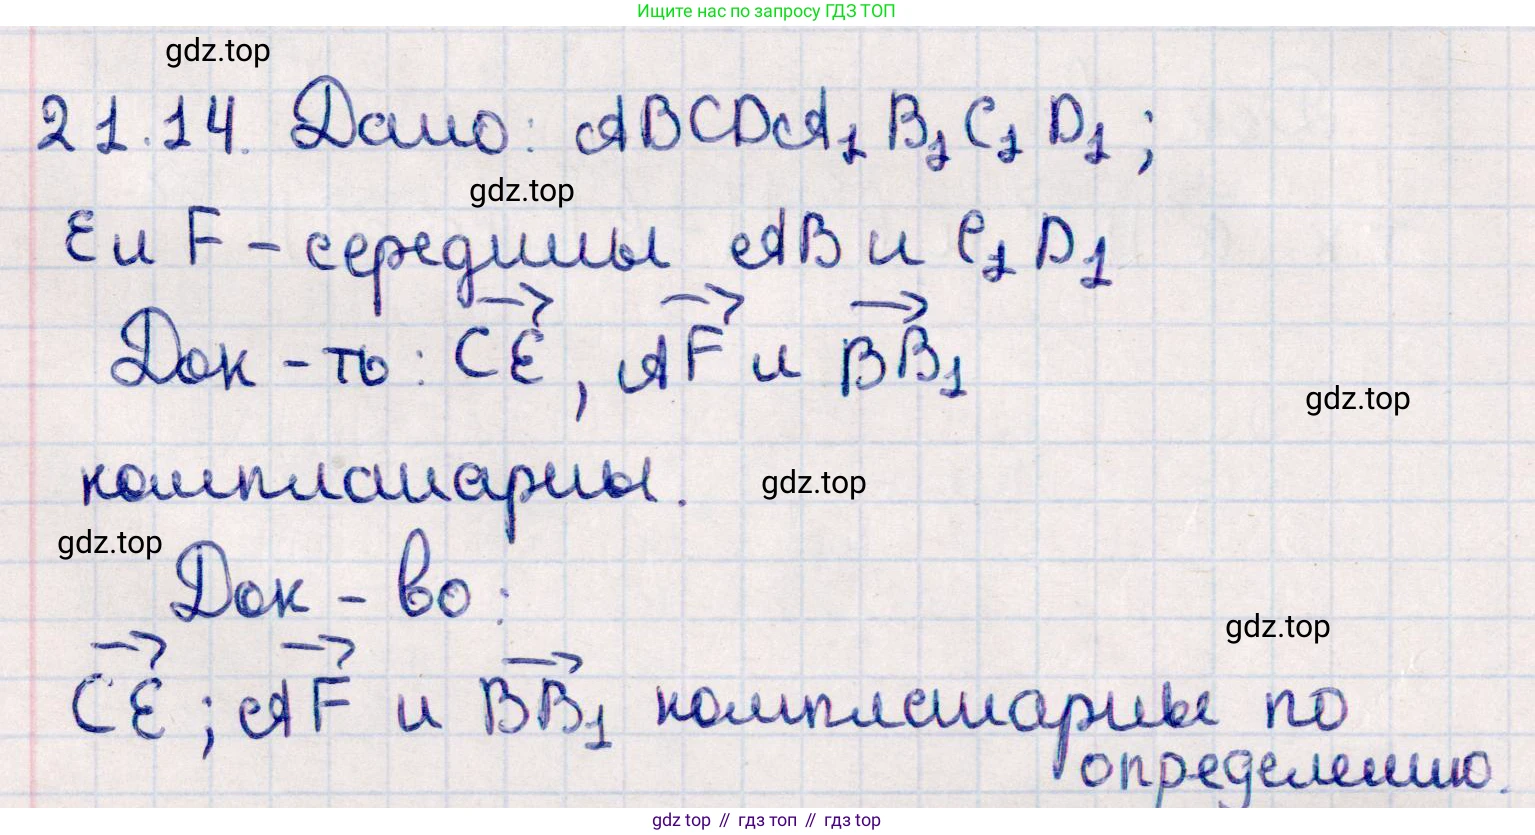 Ищите нас по запросу ГДЗ ТОП
gdz.top
21.14. Дано: ABCDA₁B₁C₁D₁;
gdz.top
E и F - середины AB и C₁D₁
Док-ть: CE, AF и BB₁
gdz.top
компланарны.
gdz.top
gdz.top
Док-во:
gdz.top
CE; AF и BB₁ компланарны по
определению.
gdz top // гдз топ // гдз top